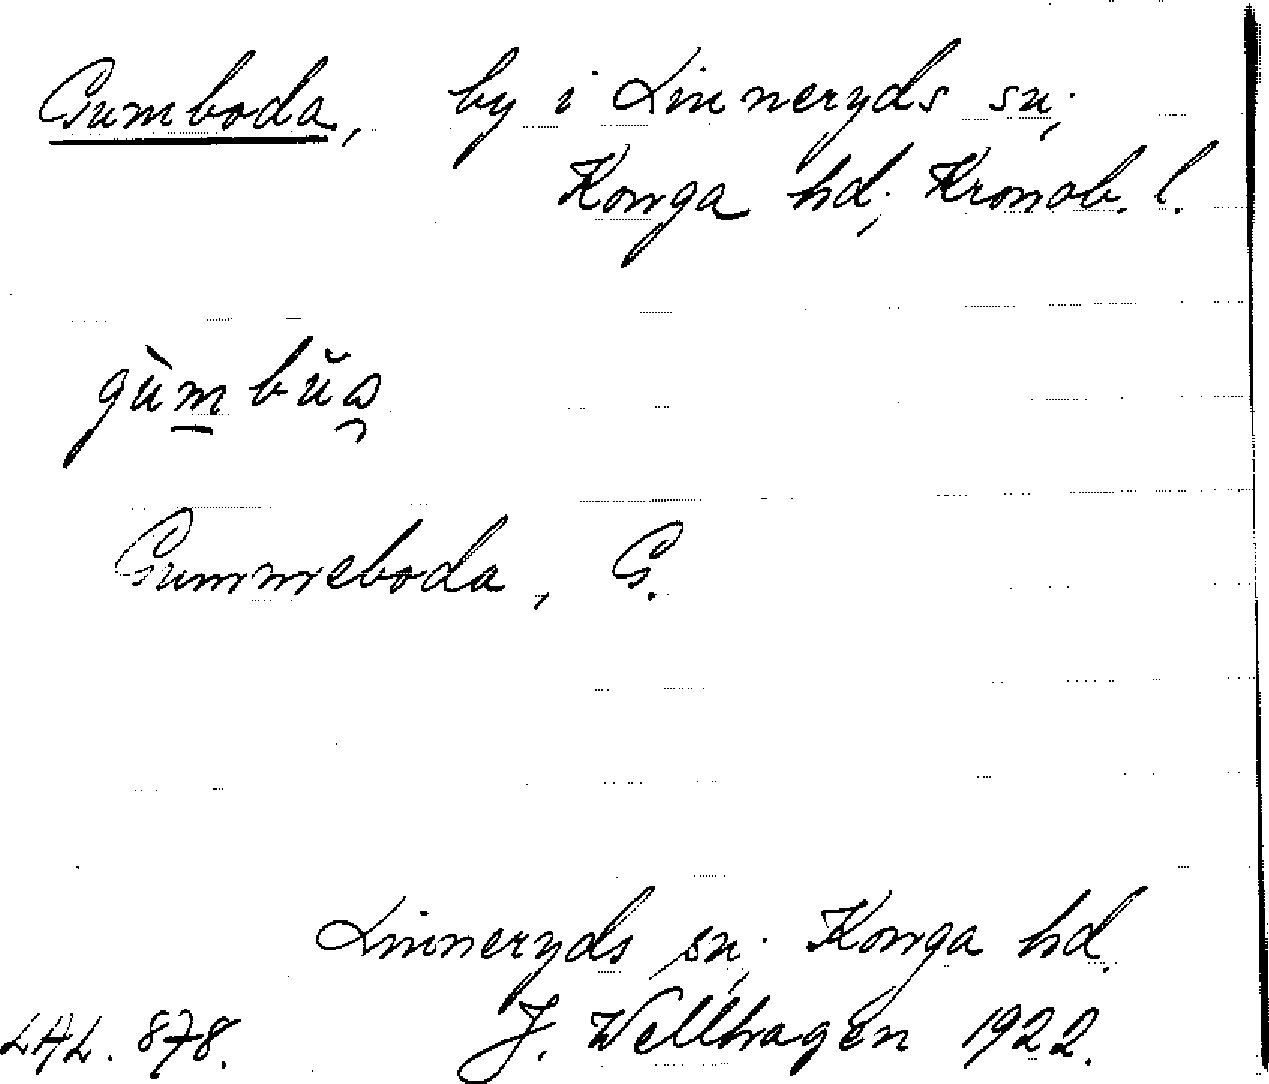 Gumboda, by i Linneryds sn;
Konga hd; Kronob. l.
gùm̲bŭꞷ̯
Gummeboda, G.
Linneryds sn; Konga hd.
LAL. 878. J. Wellhagen 1922.